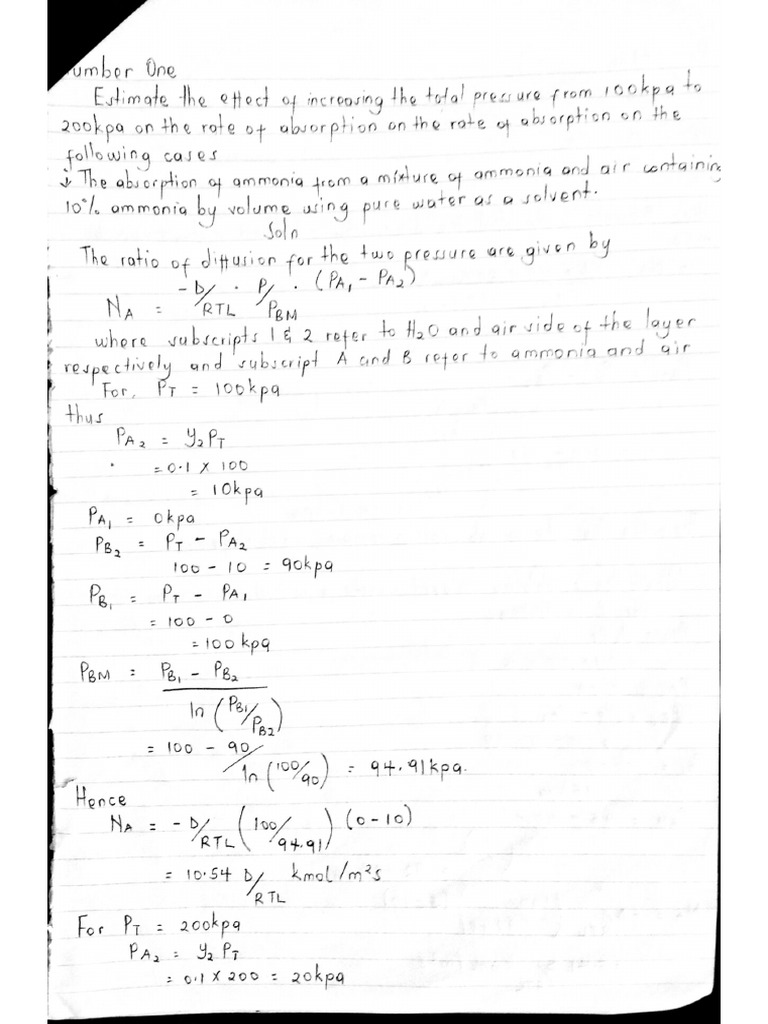 umber One
Estimate the effect of increasing the total pressure from 100kpa to
200kpa on the rate of absorption on the rate of absorption on the
following cases
The absorption of ammonia from a mixture of ammonia and air containing
10% ammonia by volume using pure water as a solvent.
Soln
The ratio of diffusion for the two pressure are given by
N_A = -D/RTL · P/P_BM · (P_A1 - P_A2)
where subscripts 1 & 2 refer to H2O and air side of the layer
respectively and subscript A and B refer to ammonia and air
For, P_T = 100kpa
thus
P_A2 = y2 P_T
= 0.1 X 100
= 10kpa
P_A1 = 0kpa
P_B2 = P_T - P_A2
100 - 10 = 90kpa
P_B1 = P_T - P_A1
= 100 - 0
= 100kpa
P_BM = P_B1 - P_B2
ln (P_B1/P_B2)
= 100 - 90/ln (100/90) = 94.91kpa.
Hence
N_A = -D/RTL (100/94.91) (0-10)
= 10.54 D/RTL kmol/m²s
For P_T = 200kpa
P_A2 = y2 P_T
= 0.1 X 200 = 20kpa